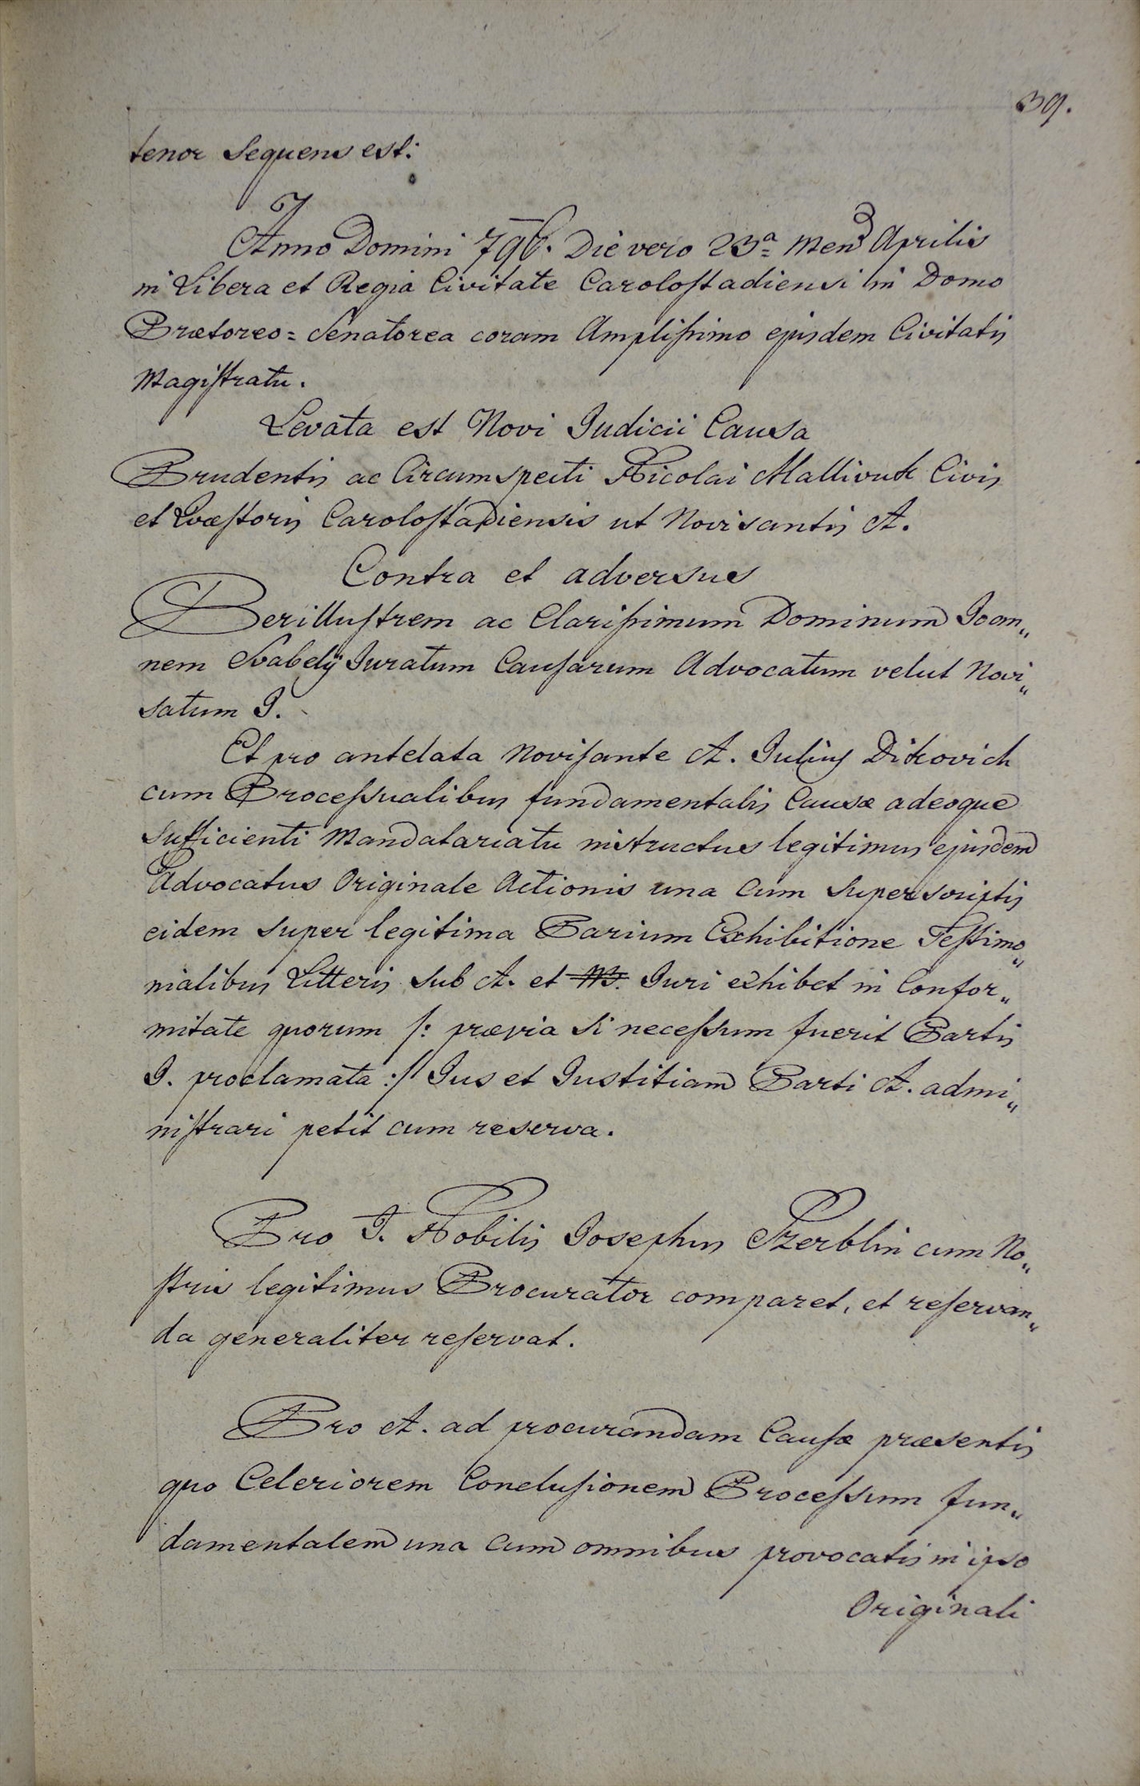 39.
tenor Sequens est:
Anno Domini 796. Die vero 23a Mens Aprilis
in Libera et Regia Civitate Carolostadiensi in Domo
Prætoreo = Senatorea coram Amplissimo ejusdem Civitatis
Magistratu.
Levata est Novi Judicii Causa
Prudentis ac Circumspecti Nicolai Mallivuk Civis
et Quæstoris Carolostadiensis ut Novisantis A.
Contra et adversus
Perillustrem ac Clarissimum Dominum Joan„
nem Svabelÿ Juratum Causarum Advocatum velut Novi„
satum I.
Et pro antelata Novisante A. Julius Dikovich
cum Processualibus fundamentalis Causæ adeoque
Sufficienti Mandatariatu instructus legitimus ejusdem
Advocatus Originale Actionis una cum Superscriptis
eidem super legitima Parium Exhibitione Testimo„
nialibus Litteris sub A. et B. Juri exhibet in Confor„
mitate quorum /: prævia si necessum fuerit Partis
I. proclamata :/ Jus et Justitiam Parti A. admi„
nistrari petit cum reserva.
Pro I. Nobilis Josephus Szerblin cum No„
stris legitimus Procurator comparet, et reservan„
da generaliter reservat.
Pro A. ad procurandam Causæ præsentis
quo Celeriorem Conclusionem Processum fun„
damentalem una cum omnibus provocatis in ipso
Originali